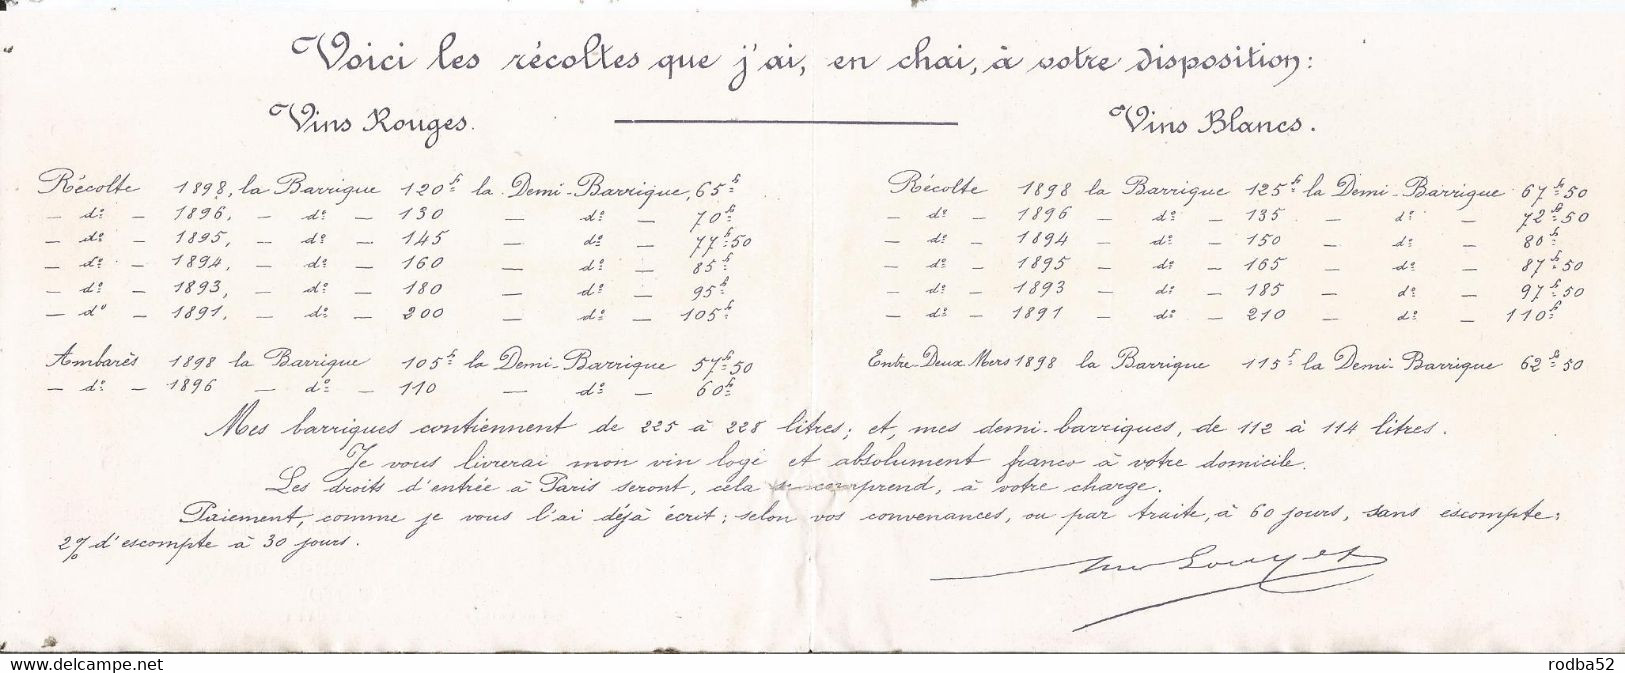 Voici les récoltes que j'ai, en chai, à votre disposition:
Vins Rouges.
Récolte 1898, la Barrique 120f la Demi-Barrique, 65f
– do – 1896, – do – 130 – do – 70f
– do – 1895, – do – 145 – do – 77f50
– do – 1894, – do – 160 – do – 85f
– do – 1893, – do – 180 – do – 95f
– do – 1891, – do – 200 – do – 105f
Ambarès 1898 la Barrique 105f la Demi-Barrique 57f50
– do – 1896 – do – 110 – do – 60f
Vins Blancs.
Récolte 1898 la Barrique 125f la Demi-Barrique 67f50
– do – 1896 – do – 135 – do – 72f50
– do – 1894 – do – 150 – do – 80f
– do – 1895 – do – 165 – do – 87f50
– do – 1893 – do – 185 – do – 97f50
– do – 1891 – do – 210 – do – 110f
Entre-Deux Mers 1898 la Barrique 115f la Demi-Barrique 62f50
Mes barriques contiennent de 225 à 228 litres; et, mes demi-barriques, de 112 à 114 litres.
Je vous livrerai mon vin logé et absolument franco à votre domicile.
Les droits d'entrée à Paris seront, cela se comprend, à votre charge.
Paiement, comme je vous l'ai déjà écrit; selon vos convenances, ou par traite, à 60 jours, sans escompte;
2% d'escompte à 30 jours.
delcampe.net
rodba52